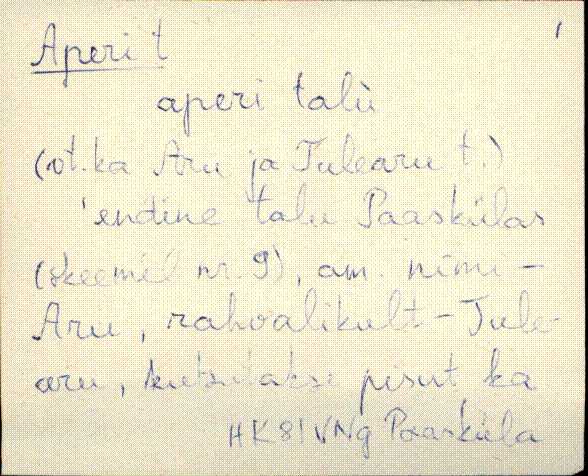 1
Aperi t
aperi talù
(vt. ka Aru ja Tulearu t.)
'endine talu Paaskülas
(skeemil nr. 9), am. nimi -
Aru, rahvalikult - Tule-
aru, kutsutakse pisut ka
HK 81 VNg Paasküla